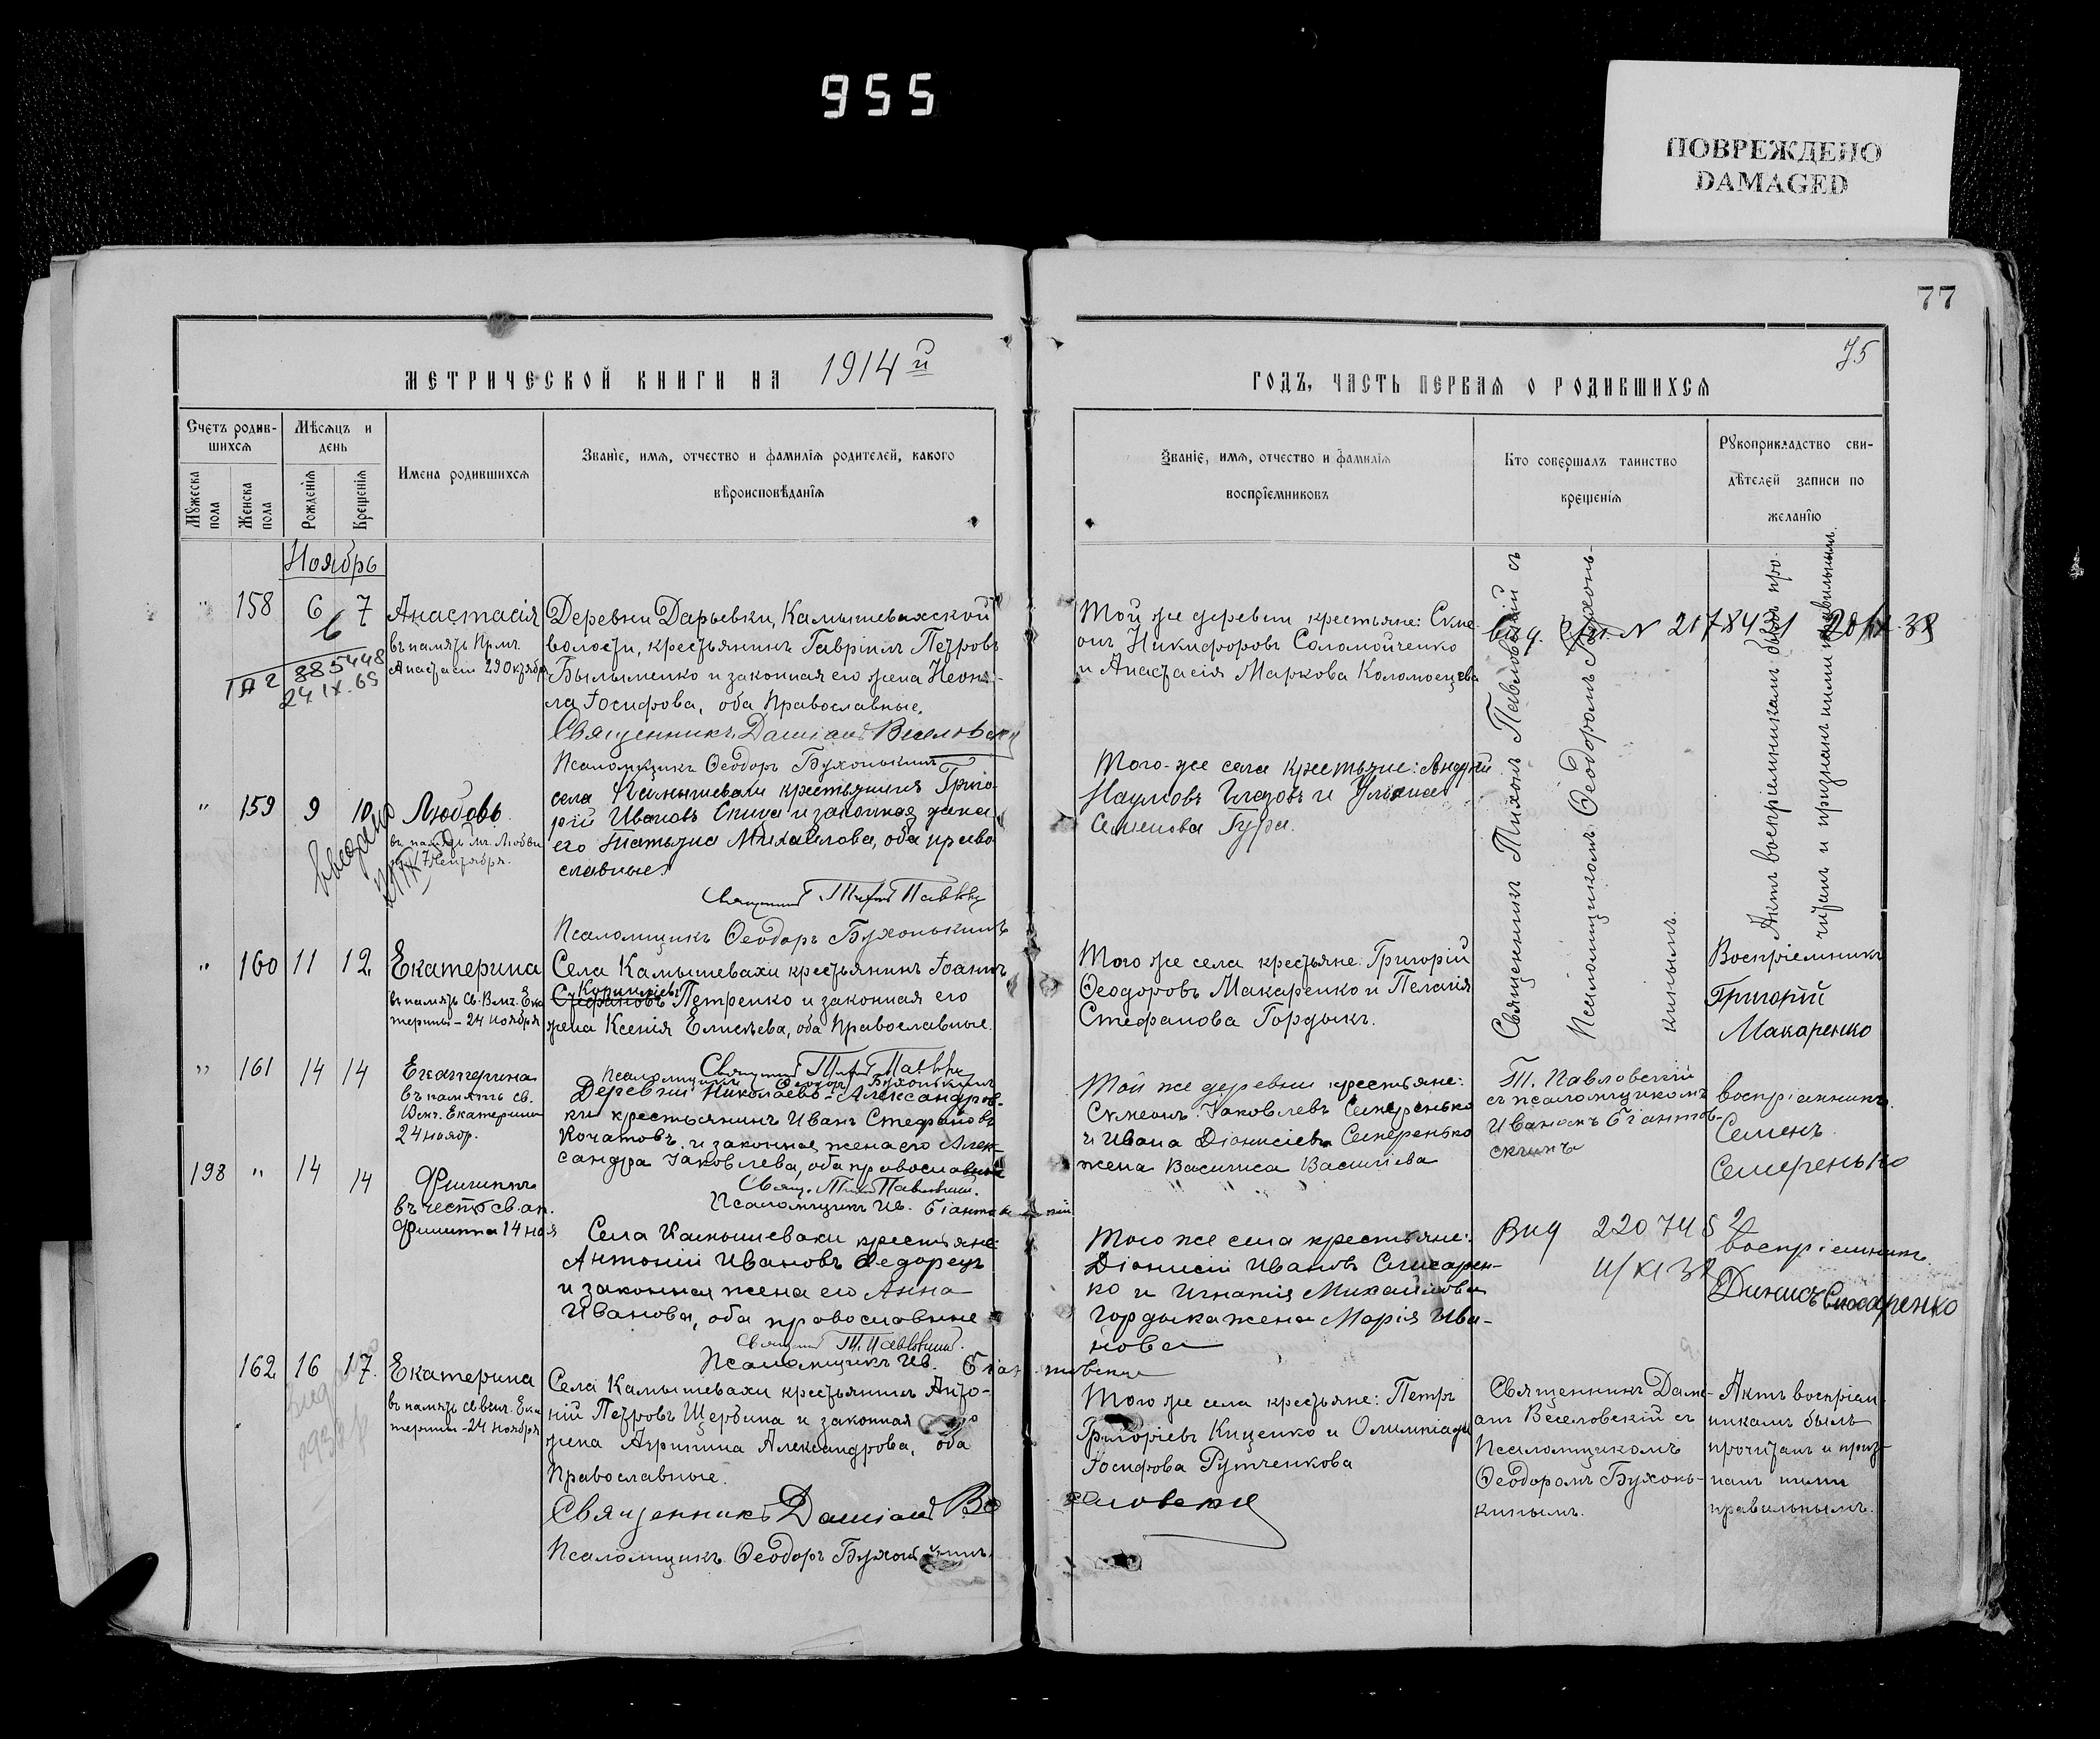 955
ПОВРЕЖДЕНО
DAMAGED
77
75
МЕТРИЧЕСКОЙ КНИГИ НА 1914 й
ГОДЪ, ЧАСТЬ ПЕРВАЯ О РОДИВШИХСЯ
Счетъ родив-
шихся
Мужеска пола
Женска пола
Мѣсяцъ и
день
Рожденія
Крещенія
Имена родившихся
Званіе, имя, отчество и фамилія родителей, какого
вѣроисповѣданія
Званіе, имя, отчество и фамилія
воспріемниковъ
Кто совершалъ таинство
крещенія
Рукоприкладство сви-
дѣтелей записи по
желанію
Ноябрь
" 158 6 7 Анастасія
въ память Прмч.
Анастасіи 29 Октября
885448
24 IX. 65
Деревни Дарьевки, Камышевахской
волости, крестьянинъ Гавріилъ Петровъ
и законная его жена Неони-
ла Іосифова, оба Православные.
Священникъ Даміанъ Веселовскій
Псаломщикъ Ѳеодоръ Бухонькинъ
Той же деревни крестьяне: Симе-
онъ Никифоровъ Соломойченко
и Анастасія Маркова Коломоецева
Священникъ Тихонъ Павловскій съ
Псаломщикомъ Ѳеодоромъ Бухонь-
кинымъ.
Актъ воспріемникамъ былъ про-
читанъ и признанъ ими правильнымъ.
" 159 9 10 Любовь
въ память мч. Любви
17 Сентября.
выдано
села Камышевахи крестьянинъ Григо-
рій Ивановъ Спица и законная жена
его Татьяна Михаилова, оба право-
славные.
Священникъ Тихонъ Павловскій
Псаломщикъ Ѳеодоръ Бухонькинъ
Того-же села крестьяне: Андрей
Наумовъ Глазовъ и Ульяна
Семенова Гура.
" 160 11 12 Екатерина
въ память Св. Влмч. Ека-
терины - 24 ноября
Села Камышевахи крестьянинъ Іоаннъ
Корниліевъ
Стефановъ Петренко и законная его
жена Ксенія Елисѣева, оба Православные.
Священникъ Тихонъ Павловскій
Псаломщикъ Ѳеодоръ Бухонькинъ
Того же села крестьяне: Григорій
Ѳеодоровъ Макаренко и Пелагія
Стефанова Гордыкъ.
Воспріемникъ
Григорій
Макаренко
" 161 14 14 Екатерина
въ память св.
Вмч. Екатерины
24 ноябр.
Деревни Николаево-Александров-
ки крестьянинъ Иванъ Стефановъ
Кочатовъ и законная жена его Алек-
сандра Іаковлева, оба православные
Свящ. Тихонъ Павловскій.
Псаломщикъ Ив.
Той же деревни крестьяне:
Симеонъ Іаковлевъ Семеренько
и Ивана Діонисіева Семеренько
жена Василиса Василіева
Т. Павловскій
съ псаломщикомъ
Иваномъ
воспріемникъ
Семенъ
Семеренько
198 " 14 14 Филиппъ
въ честь св. ап.
Филиппа 14 ноя
Села Камышевахи крестьяне:
Антоній Ивановъ Федорецъ
и законная жена его Анна
Иванова, оба православные
Священникъ Т. Павловскій.
Псаломщикъ Ив.
Того же села крестьяне:
Діонисій Ивановъ Слюсарен-
ко и Игнатія Михаилова
Гордыка жена Марія Ива-
нова
воспріемникъ
Динисъ Слюсаренко
162 16 17. Екатерина
въ память св влмч. Ека-
терины - 24 ноября
Села Камышевахи крестьянинъ Анто-
ній Петровъ Щербина и законная его
жена Агрипина Александрова, оба
Православные.
Священникъ Даміанъ Веселовскій
Псаломщикъ Ѳеодоръ Бухонькинъ.
Того же села крестьяне: Петръ
Григоріевъ Киценко и Олимпіада
Іосифова Рутченкова
Священникъ Дамі-
анъ Веселовскій съ
Псаломщикомъ
Ѳеодоромъ Бухонь-
кинымъ.
Актъ воспріем-
никамъ былъ
прочитанъ и приз-
нанъ ими
правильнымъ.